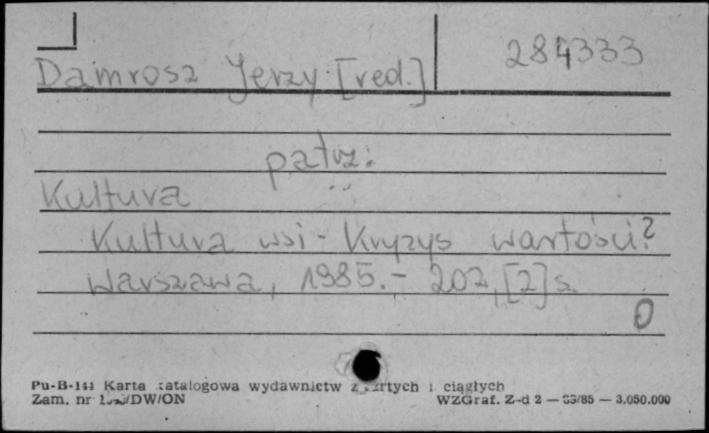 284333
Damrosz Jerzy [red.]
patrz:
Kultura
Kultura wsi - Kryzys wartości?
Warszawa, 1985. - 202, [2] s.
0
Pu-B-144 Karta katalogowa wydawnictw zwartych i ciągłych
Zam. nr /DW/ON WZGraf. Z-d 2 — 85 — 3.050.000